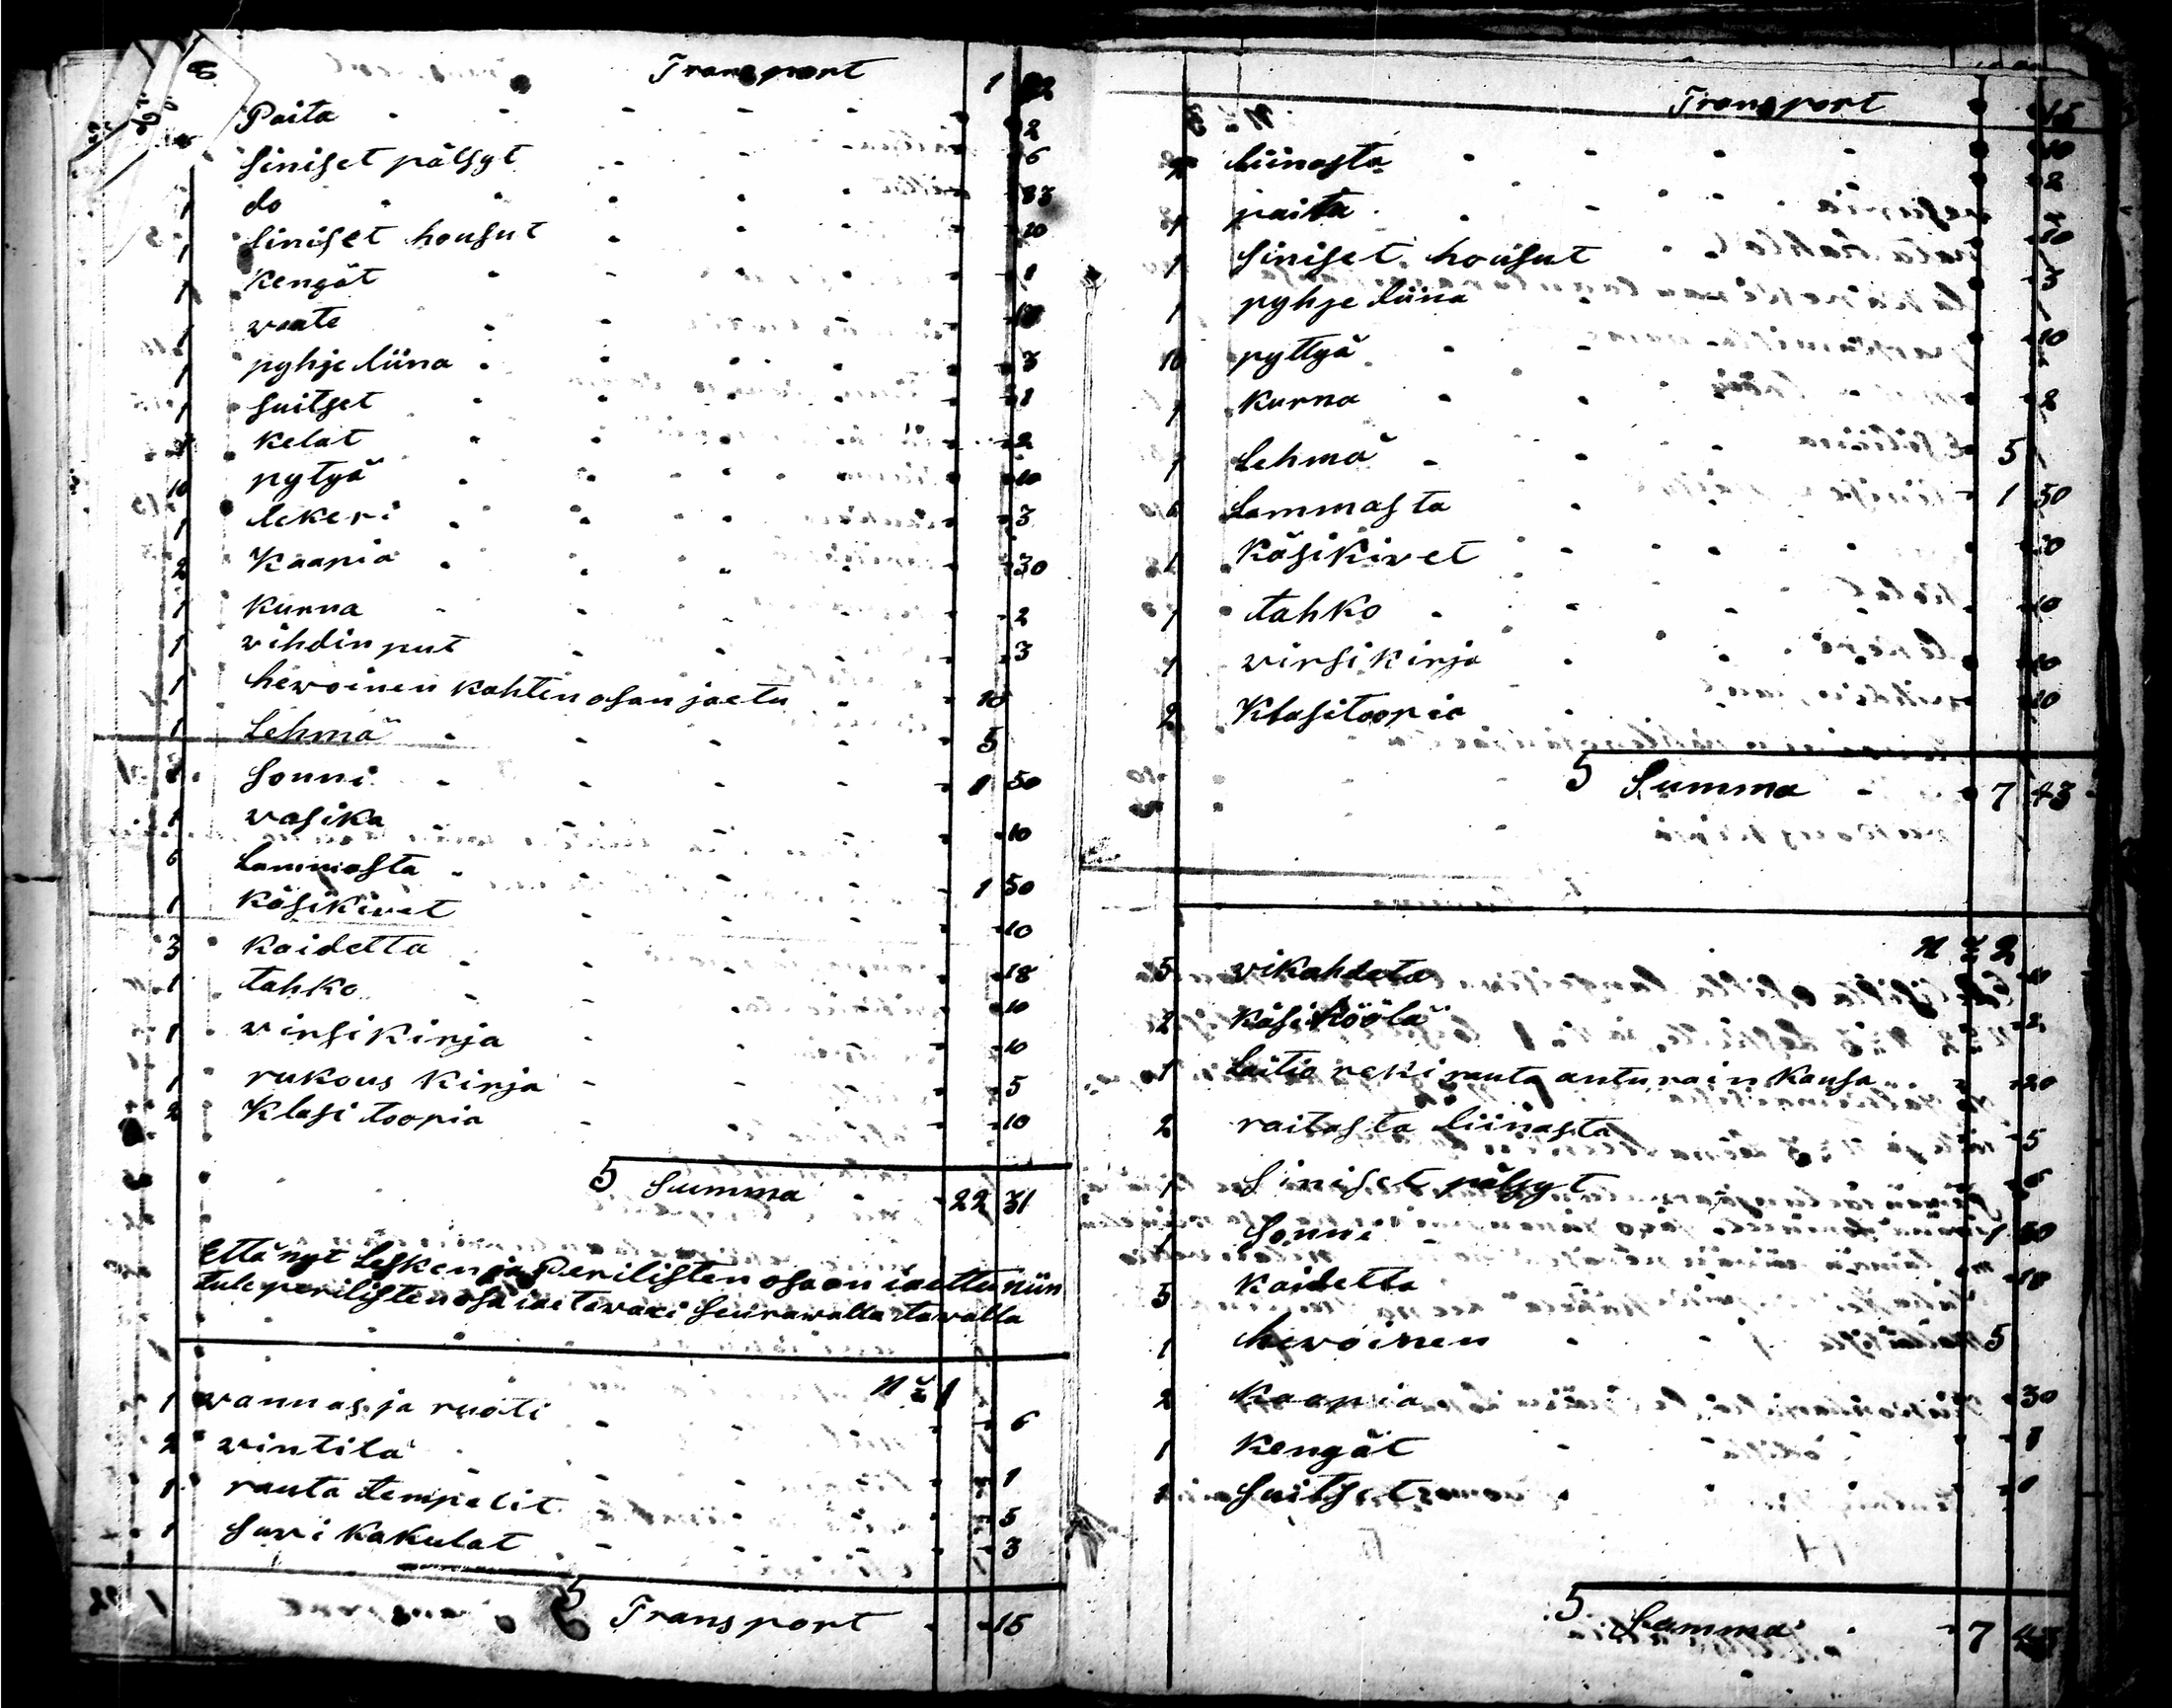 Transport 1 22
Paita 2
1 siniset pälsyt 6
1 do 33
1 siniset housut 10
1 Kengät 1
1 waate
1 pyhje liina 3
1 suitset 1
Kelat 2
10 pytyä 10
1 lekeri 3
2 Kaapia 30
1 Kurna 2
1 vihdin put 3
1 hewoinen kahten osan jaetu 10
1 Lehmä 5
1 Sonni 1 50
1 vasika 10
6 Lammasta 1 50
1 Käsikivet 10
3 Kaidetta 18
1 tahko 10
1 virsi kirja 10
1 rukous kirja 5
2 Klasi toopia 10
5 Summa 22 31
Että nyt Lesken ja Perilisten osa on iaettu niin
tule perilisten osa iaetawaxi seurawalla tawalla
N:o 1
1 vannas ja ruoti 6
2 vintilä 1
1 rauta tempelit 5
1 suvi kakulat 3
5 Transport 15
Transport 15
liinasta 10
1 paita 2
1 siniset housut 10
1 pyhje liina 3
10 pyttyä 10
1 Kurna 2
1 Lehmä 5
6 Lammasta 1 50
1 Käsikivet 10
1 tahko 10
1 virsi kirja 10
2 Klasitoopia 10
5 Summa 7 43
N:o 2
5 vikahdeta 10
2 Käsi Köölä 2
1 Laitio reki rauta anturain kansa 20
2 raitasta liinasta 5
1 siniset pälsyt 6
1 Sonni 1 50
3 Kaidetta 18
1 hevoinen 5
2 Kaapia 30
1 Kengät 1
1 suitset 1
5 Summa 7 43